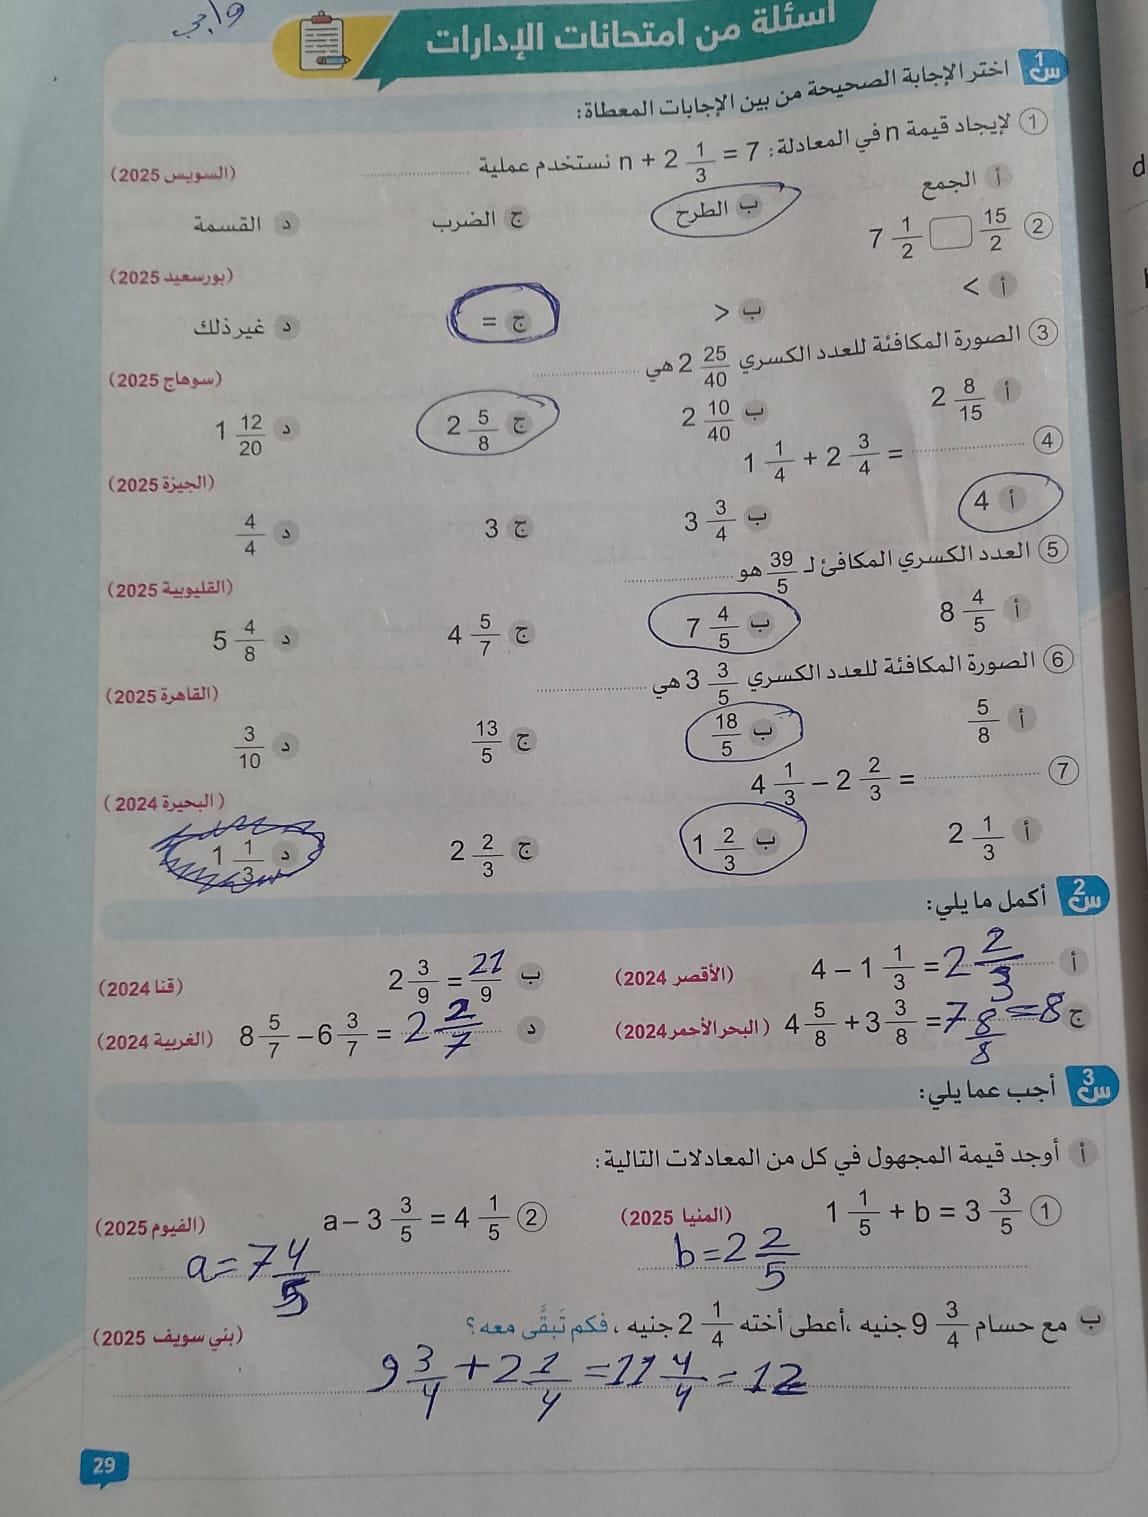 واجب
أسئلة من امتحانات الإدارات
س1 اختر الإجابة الصحيحة من بين الإجابات المعطاة:
① لإيجاد قيمة n في المعادلة: n + 2 1/3 = 7 نستخدم عملية .................... (السويس 2025)
أ الجمع ب الطرح ج الضرب د القسمة
② 7 1/2 □ 15/2 (بورسعيد 2025)
أ > ب < ج = د غير ذلك
③ الصورة المكافئة للعدد الكسري 2 25/40 هي .................... (سوهاج 2025)
أ 2 8/15 ب 2 10/40 ج 2 5/8 د 1 12/20
④ 1 1/4 + 2 3/4 = .................... (الجيزة 2025)
أ 4 ب 3 3/4 ج 3 د 4/4
⑤ العدد الكسري المكافئ لـ 39/5 هو .................... (القليوبية 2025)
أ 8 4/5 ب 7 4/5 ج 4 5/7 د 5 4/8
⑥ الصورة المكافئة للعدد الكسري 3 3/5 هي .................... (القاهرة 2025)
أ 5/8 ب 18/5 ج 13/5 د 3/10
⑦ 4 1/3 – 2 2/3 = .................... (البحيرة 2024)
أ 2 1/3 ب 1 2/3 ج 2 2/3 د 1 1/3
س2 أكمل ما يلي:
أ 4 – 1 1/3 = 2 2/3 (الأقصر 2024) ب 2 3/9 = 21/9 (قنا 2024)
ج 4 5/8 + 3 3/8 = 7 8/8 = 8 (البحر الأحمر 2024) د 8 5/7 – 6 3/7 = 2 2/7 (الغربية 2024)
س3 أجب عما يلي:
أ أوجد قيمة المجهول في كل من المعادلات التالية:
① 1 1/5 + b = 3 3/5 (المنيا 2025) ② a – 3 3/5 = 4 1/5 (الفيوم 2025)
b = 2 2/5 a = 7 4/5
ب مع حسام 9 3/4 جنيه ،أعطى أخته 2 1/4 جنيه ، فكم تَبقَّى معه؟ (بني سويف 2025)
9 3/4 + 2 1/4 = 11 4/4 = 12
29
d